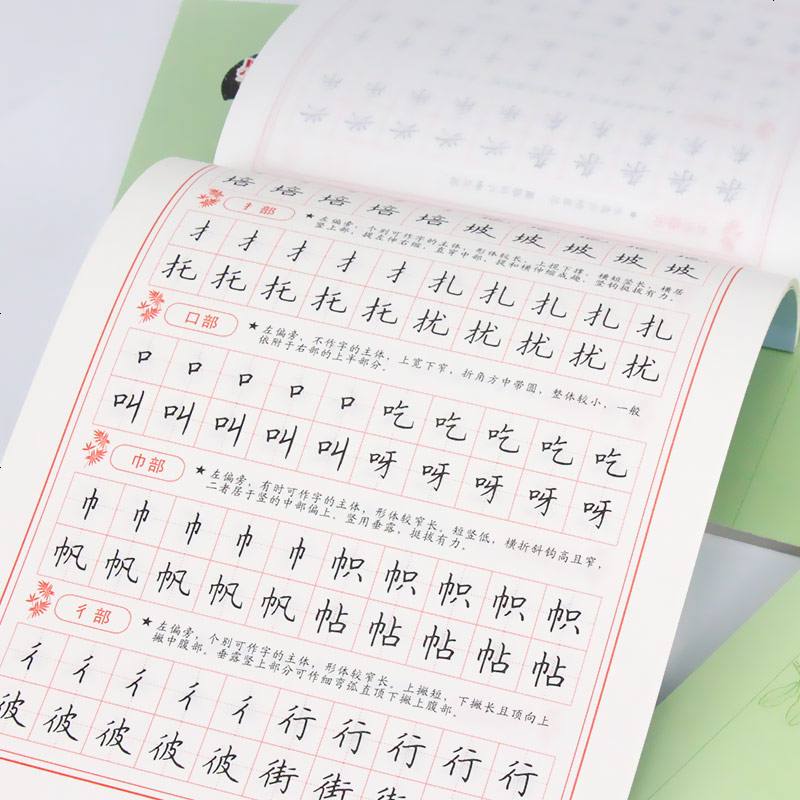 培 培 培 培 培 坡 坡 坡 坡 坡
扌部
★左偏旁，个别可作字的主体，形体较长，上提下撑，横短竖长，横居
竖上部，提左伸右缩，直穿中部，提和横伸缩成趣，竖钩挺拔有力。
扌 扌 扌 扌 扌 扎 扎 扎 扎 扎
托 托 托 托 托 扰 扰 扰 扰 扰
口部
★左偏旁，不作字的主体，上宽下窄，折角方中带圆，整体较小，一般
依附于右部的上半部分。
口 口 口 口 口 吃 吃 吃 吃 吃
叫 叫 叫 叫 叫 呀 呀 呀 呀 呀
巾部
★左偏旁，有时可作字的主体，形体较窄长。短竖低，横折斜钩高且窄，
二者居于竖的中部偏上，竖用垂露，挺拔有力。
巾 巾 巾 巾 巾 帜 帜 帜 帜 帜
帆 帆 帆 帆 帆 帖 帖 帖 帖 帖
彳部
★左偏旁，个别可作字的主体，形体较窄长。上撇短，下撇长且顶向上
撇中腹部。垂露竖上部分可作细弯弧直顶下撇上腹部。
彳 彳 彳 彳 彳 行 行 行 行 行
彼 彼 彼 彼 彼 街 街 街